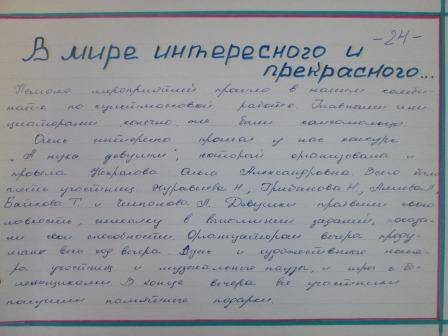 -24-
В мире интересного и
прекрасного...
Немало мероприятий прошло в нашем комби-
нате по культмассовой работе. Главными ини-
циаторами конечно же были комсомольцы.
Очень интересно прошел у нас конкурс
"А ну-ка девушки", который организовала и
провела Некрасова Ольга Александровна. Всего было
шесть участниц. Журавлева Н, Грибанова Н,
Байкова Т. и Л. Девушки проявили свою
ловкость, смекалку в выполнении заданий, показа-
ли свои способности. Организатором вечера проду-
ман весь ход вечера. Здесь и художественные номе-
ра участниц и музыкальные паузы, и игры с бо-
лельщиками. В конце вечера все участники
получили памятные подарки.